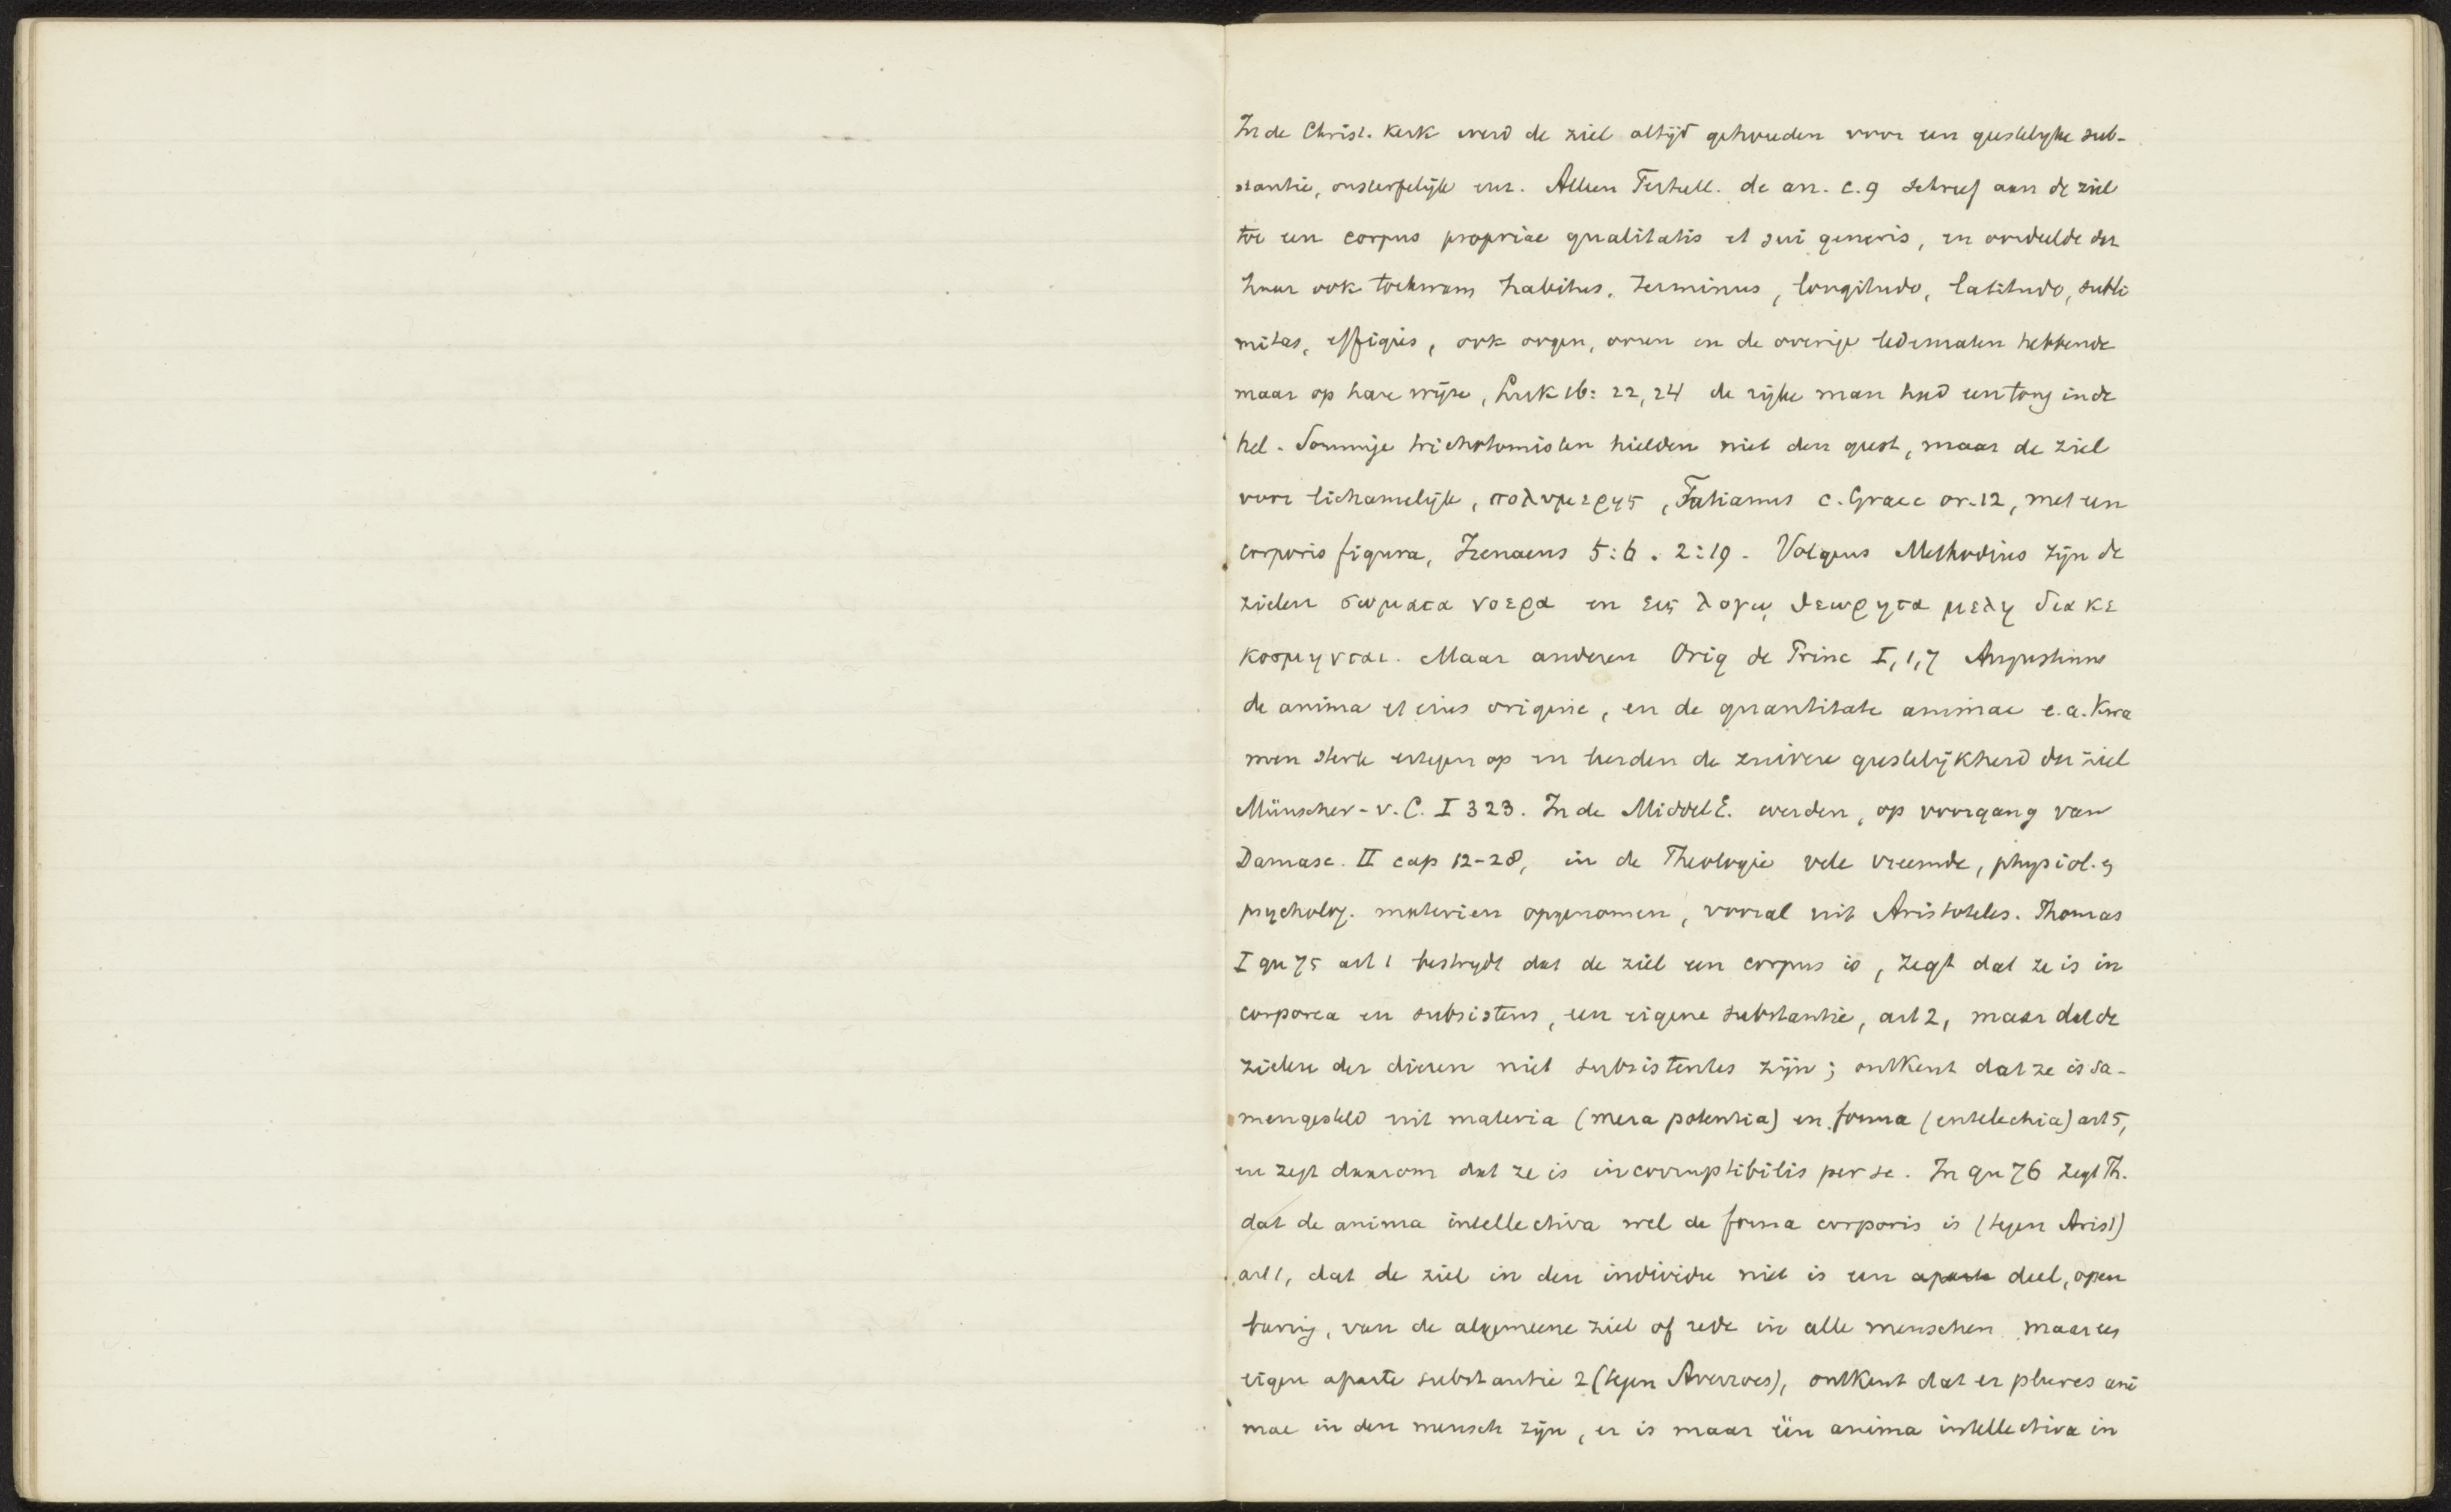 In de Christ. kerk werd de ziel altijd gehouden voor een geestelijke sub-
stantie, onsterfelijk enz. Alleen Tertull. de an. c. 9 schreef aan de ziel
toe een corpus propriae qualitatis et sui generis, en oordeelde dat
haar ook toekwam habitus, terminus, longitudo, latitudo, subli
mitas, effigies, ook oogen, ooren en de overige ledematen hebbende
maar op hare wijze, Luk 16: 22, 24 de rijke man had een tong in de
hel. Sommige trichotomisten hielden niet den geest, maar de ziel
voor lichamelijk, πολυμερης, Tatianus c. Graec or. 12, met een
corporis figura, Irenaeus 5:6. 2:19. Volgens Methodius zijn de
zielen σωματα νοερα en εις λογῳ θεωρητα μελη διακε
κοσμηνται. Maar anderen Orig de Princ I, 1, 7 Augustinus
de anima et eius origine, en de quantitate animae e.a. kwa
men sterk ertegen op en leerden de zuivere geestelijkheid der ziel
Münscher-v. C. I 323. In de Middel E. werden, op voorgang van
Damasc. II cap 12-28, in de Theologie vele vreemde, physiol. en
psycholog. materien opgenomen, vooral uit Aristoteles. Thomas
I qu 75 art 1 bestrijdt dat de ziel een corpus is, zegt dat ze is in
corporea en subsistens, een eigene substantie, art 2, maar dat de
zielen der dieren niet subsistentes zijn; ontkent dat ze is sa-
mengesteld uit materia (mera potentia) en forma (entelechia) art 5,
en zegt daarom dat ze is incorruptibilis per se. In qu 76 zegt Th.
dat de anima intellectiva wel de forma corporis is (tegen Arist)
art 1, dat de ziel in den individu niet is een aparte deel, open
baring, van de algemeene ziel of rede in alle menschen maar een
eigen aparte substantie 2 (tegen Averroes), ontkent dat er plures ani
mae in den mensch zijn, er is maar één anima intellectiva in